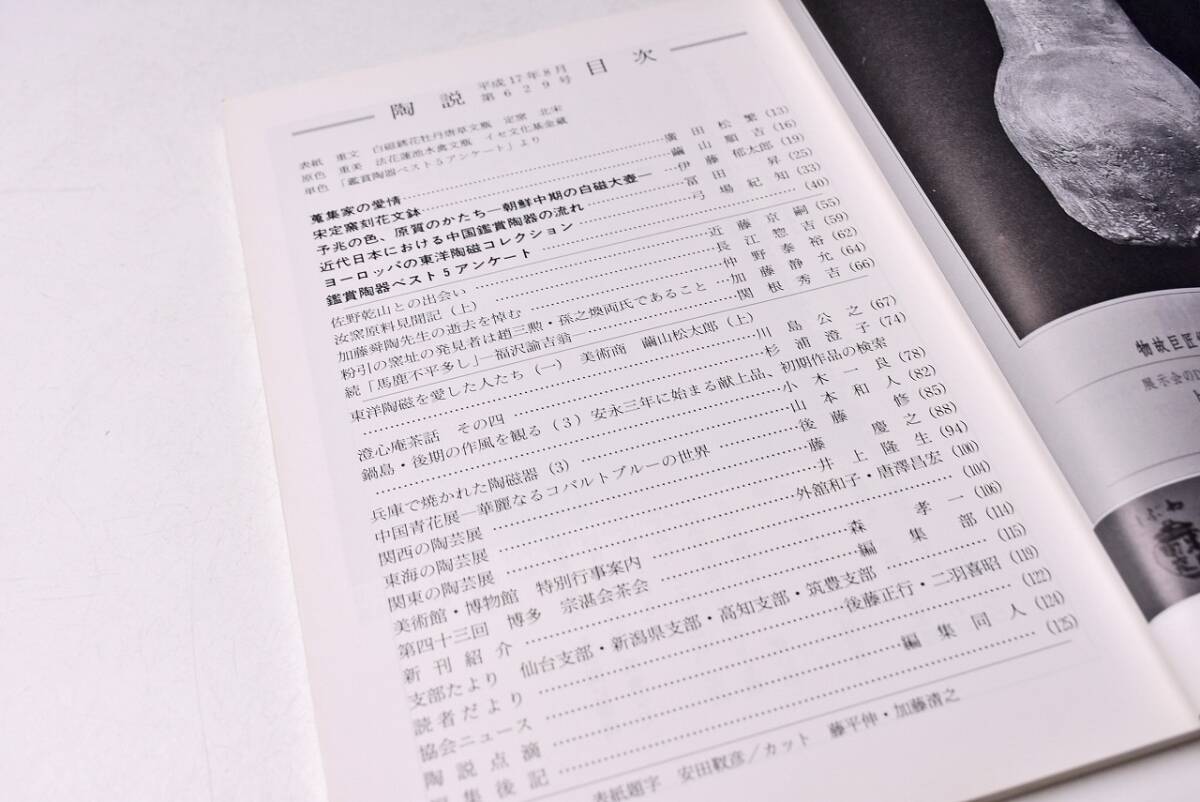 陶説 平成17年8月 第629号 目次
表紙 重文 白磁銹花牡丹唐草文瓶 定窯 北宋
原色 重美 法花蓮池水禽文瓶 イセ文化基金蔵
単色 「鑑賞陶器ベスト5アンケート」より
蒐集家の愛情……廣田松繁 (13)
宋定窯刻花文鉢……繭山順吉 (16)
予兆の色、原質のかたち―朝鮮中期の白磁大壺―伊藤郁太郎 (19)
近代日本における中国鑑賞陶器の流れ……富田昇 (25)
ヨーロッパの東洋陶磁コレクション……弓場紀知 (33)
鑑賞陶器ベスト5アンケート……(40)
佐野乾山との出会い……近藤京嗣 (55)
汝窯原料見聞記（上）……長江惣吉 (59)
加藤舜陶先生の逝去を悼む……仲野泰裕 (62)
粉引の窯址の発見者は趙三勲・孫之煥両氏であること…加藤静允 (64)
続「馬鹿不平多し」―福沢諭吉翁……関根秀吉 (66)
東洋陶磁を愛した人たち（一） 美術商 繭山松太郎（上）
……川島公之 (67)
澄心庵茶話 その四……杉浦澄子 (74)
鍋島・後期の作風を観る（3）安永三年に始まる献上品、初期作品の検索
……小木一良 (78)
兵庫で焼かれた陶磁器（3）……山本和人 (82)
中国青花展―華麗なるコバルトブルーの世界……後藤修 (85)
関西の陶芸展……藤慶之 (88)
東海の陶芸展……井上隆生 (94)
関東の陶芸展……外舘和子・唐澤昌宏 (100)
美術館・博物館 特別行事案内……(104)
第四十三回 博多 宗湛会茶会……森孝一 (106)
新刊紹介……編集部 (114)
支部たより 仙台支部・新潟県支部・高知支部・筑豊支部……(115)
読者だより……後藤正行・二羽喜昭 (119)
協会ニュース……(122)
陶説点滴……編集同人 (124)
集後記……(125)
表紙題字 安田靫彦／カット 藤平伸・加藤清之
物故巨匠
展示会のD